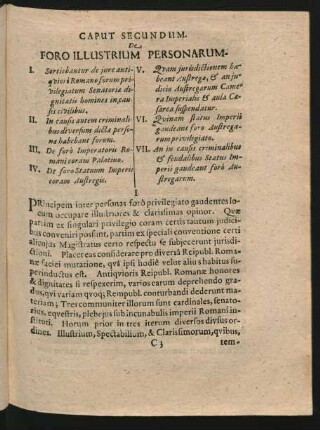 CAPUT SECUNDUM.
De
FORO ILLUSTRIUM PERSONARUM.
I. Sortiebantur de jure anti-
qviori Romano forum pri-
vilegiatum Senatoria di-
gnitatis homines in caus-
sis civilibus.
II. In causis autem criminali-
bus diversum dicta perso-
na habebant forum.
III. De foro Imperatoris Ro-
mani coram Palatino.
IV. De foro Statuum Imperii
coram Austregis.
V. Qvam jurisdictionem ha-
beant Austregæ, & an ju-
dicio Austregarum Came-
ra Imperialis & aula Cæ-
sarea suspendatur.
VI. Qvinam status Imperii
gaudeant foro Austrega-
rum privilegiato.
VII. An in causis criminalibus
& feudalibus Status Im-
perii gaudeant forô Au-
stregarum.
I.
PRincipem inter personas forô privilegiato gaudentes lo-
cum occupare illustriores & clarissimas opinor. Qvæ
partim ex singulari privilegio coram certis tautum judici-
bus conveniri possunt, partim ex speciali conventione certi
alicujus Magistratus certo respectu se subjecerunt jurisdi-
ctioni. Placet eas considerare pro diversâ Reipubl. Roma-
næ faciei mutatione, qvâ ipsi hodiè velut alius habitus su-
perinductus est. Antiqvioris Reipubl. Romanæ honores
& dignitates si respexerim, varios earum deprehendo gra-
dus, qvi variam qvoq; Rempubl. conturbandi dederunt ma-
teriam; Tres communiter illorum sunt cardinales, senato-
rius, eqvestris, plebejus sub incunabulis imperii Romani in-
stituti. Horum prior in tres iterum diversos divisus or-
dines. Illustrium, Spectabilium, & Clarissimorum, qvibus,
C 3 tem-